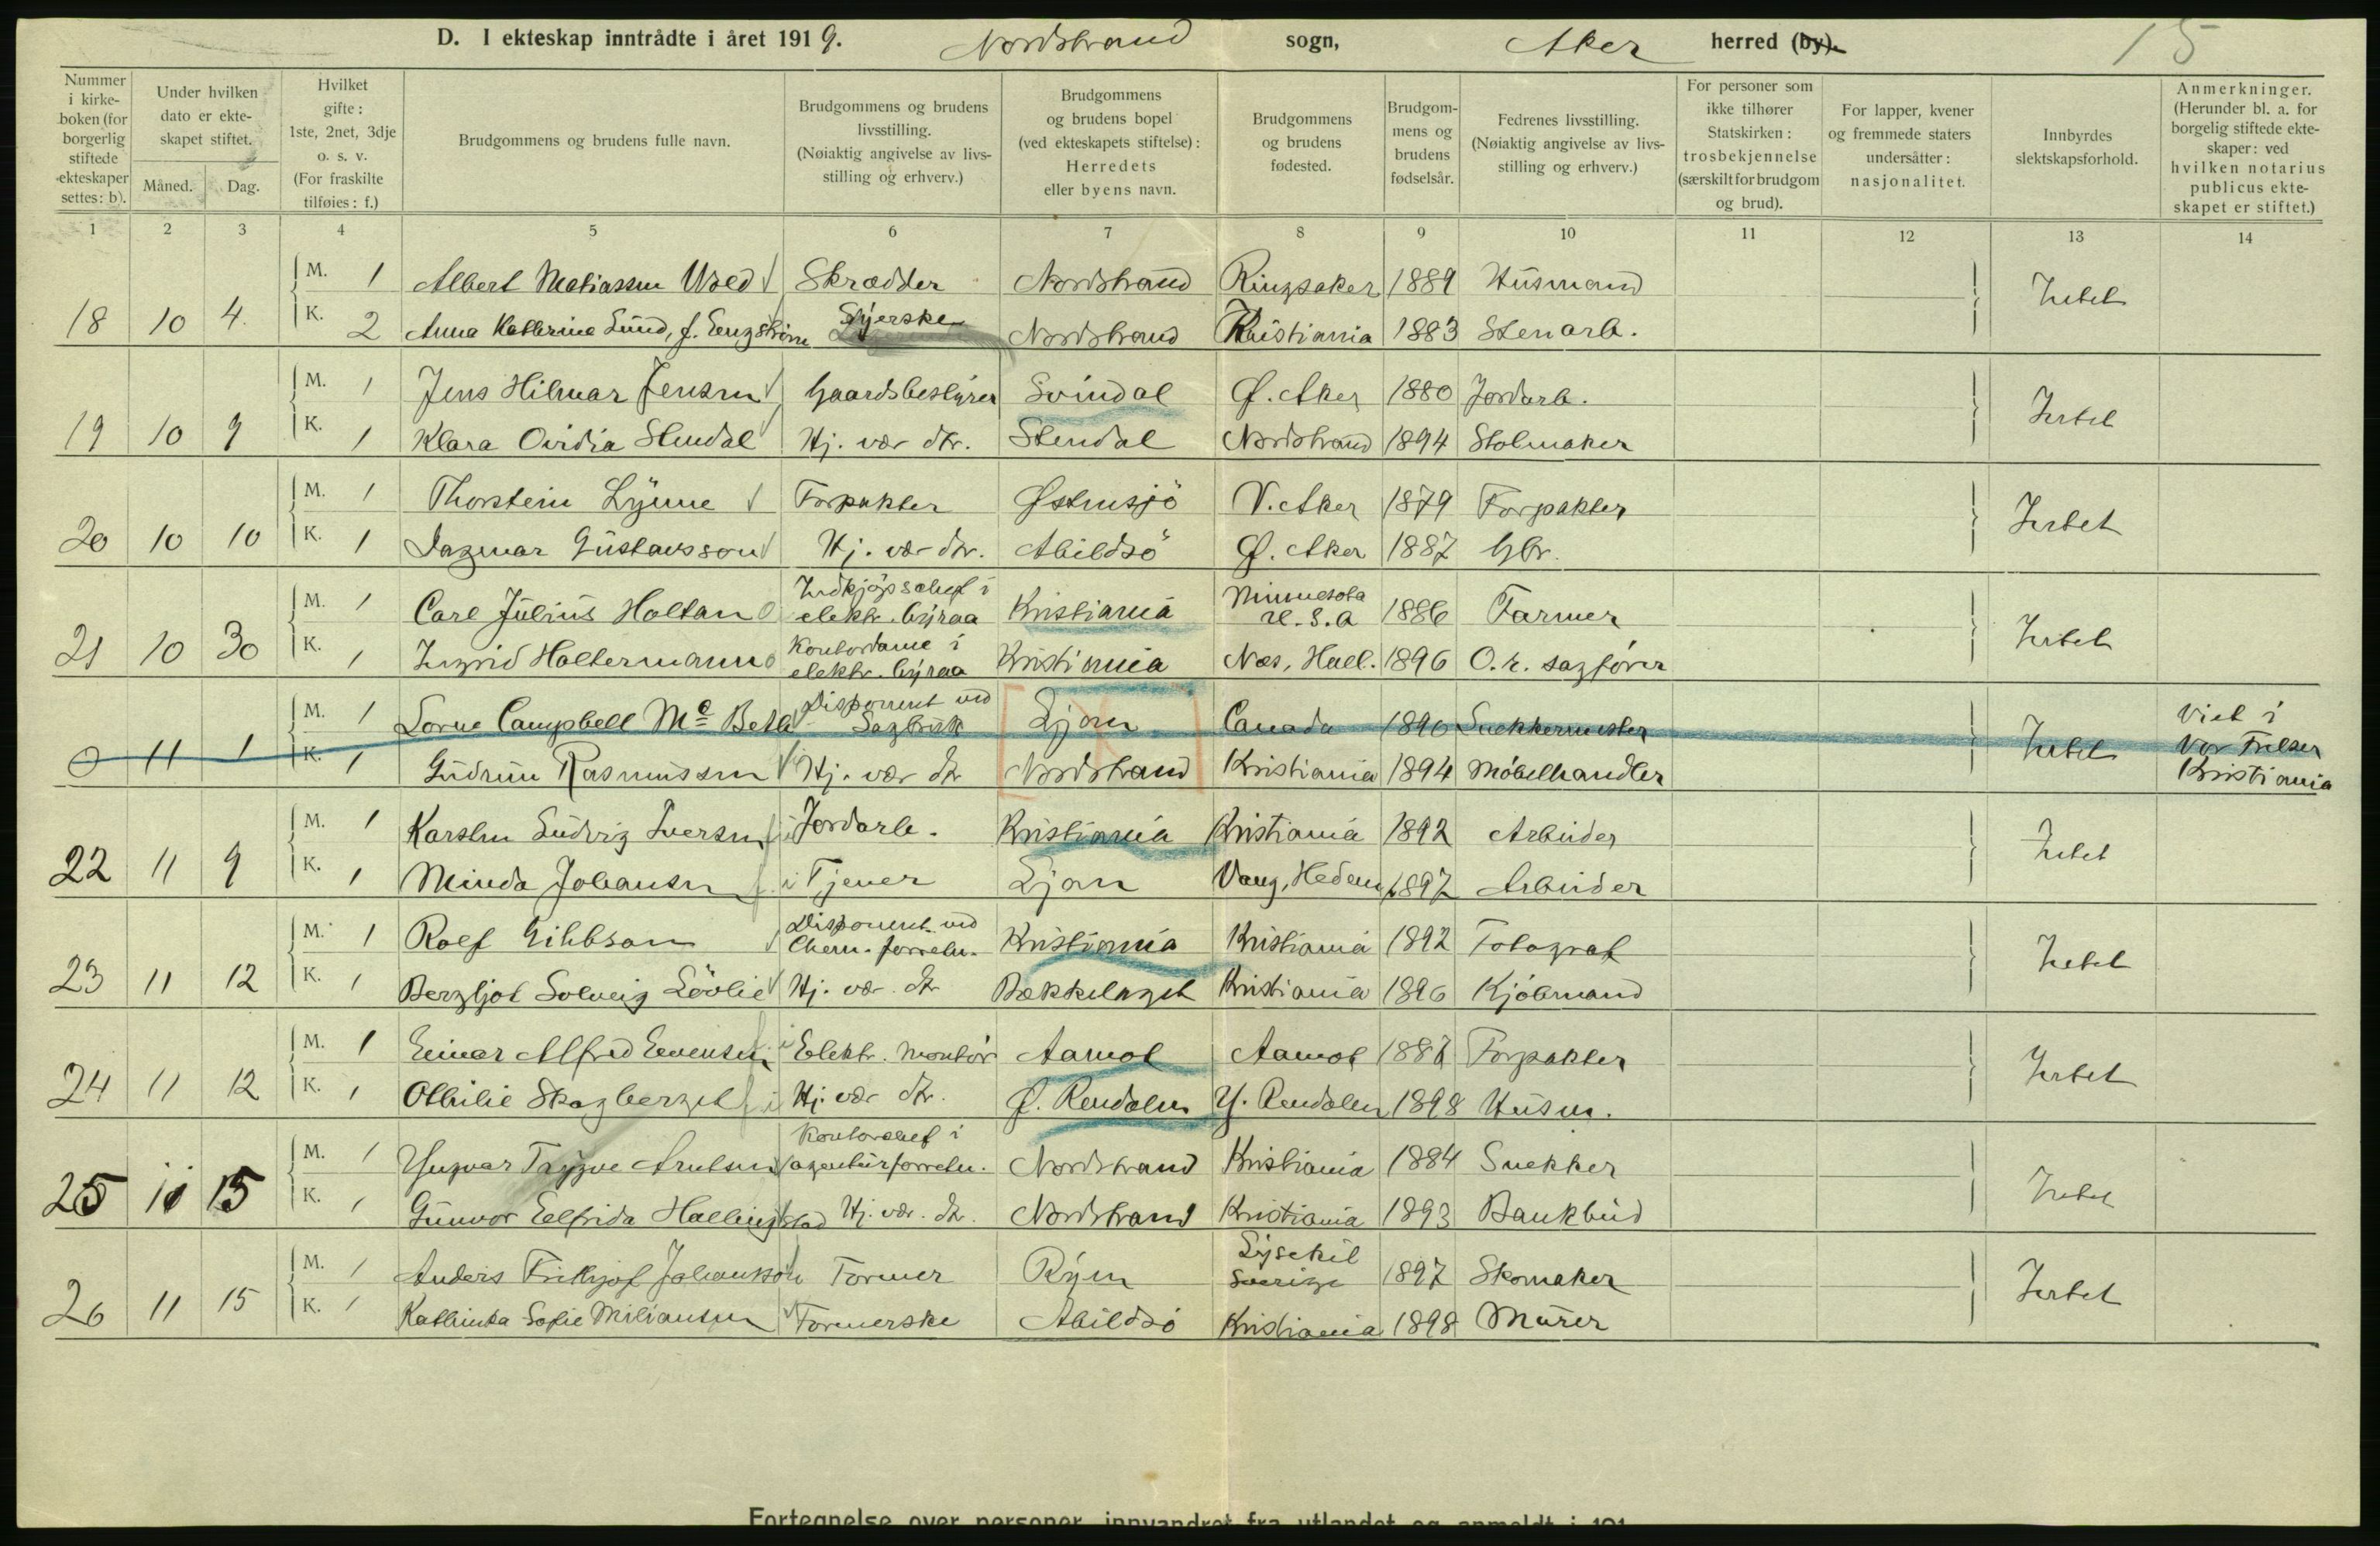 D. I ekteskap inntrådte i året 1919. Nordstrand sogn, Aker herred (by). 15
Nummer i kirkeboken (for borgerlig stiftede ekteskaper settes: b).
Under hvilken dato er ekteskapet stiftet.
Måned. Dag.
Hvilket gifte: 1ste, 2net, 3dje o. s. v. (For fraskilte tilføies: f.)
Brudgommens og brudens fulle navn.
Brudgommens og brudens livsstilling. (Nøiaktig angivelse av livsstilling og erhverv.)
Brudgommens og brudens bopel (ved ekteskapets stiftelse): Herredets eller byens navn.
Brudgommens og brudens fødested.
Brudgommens og brudens fødselsår.
Fedrenes livsstilling. (Nøiaktig angivelse av livsstilling og erhverv.)
For personer som ikke tilhører Statskirken: trosbekjennelse (særskilt for brudgom og brud).
For lapper, kvener og fremmede staters undersåtter: nasjonalitet.
Innbyrdes slektskapsforhold.
Anmerkninger. (Herunder bl. a. for borgelig stiftede ekteskaper: ved hvilken notarius publicus ekteskapet er stiftet.)
1 2 3 4 5 6 7 8 9 10 11 12 13 14
M. 1 Albert Matiassen Wold Skrædder Nordstrand Ringsaker 1889 Husmand Intet
18 10 4. K. 2 Anna Kathrine Lund, f. Engstrøm Syerske Nordstrand Kristiania 1883 Stenarb.
M. 1 Jens Hilmar Jensen Gaardsbestyrer Svindal Ø. Aker 1880 Jordarb. Intet
19 10 9 K. 1 Klara Ovidia Stendal Hj. vær. dtr. Stendal Nordstrand 1894 Stolmaker
M. 1 Thorstein Lynne Forpakter Østensjö V. Aker 1879 Forpakter Intet
20 10 10 K. 1 Dagmar Gustavsson Hj. vær. dtr. Abildsö Ø. Aker 1887 Gbr.
M. 1 Carl Julius Holtan Indkjøpschef i elektr. byraa Kristiania Minnesota U.S.A 1886 Farmer Intet
21 10 30 K. 1 Ingrid Haltermann Kontordame i elektr. byraa Kristiania Næs, Hall. 1896 O.r. sagfører
M. 1 Lorne Campbell Mc Beth Disponent ved Sagbruk Ljan Canada 1890 Snekkermester Intet Viet i Vor Frelser Kristiania
0 11 1 K. 1 Gudrun Rasmussen Hj. vær. dtr Nordstrand Kristiania 1894 Møbelhandler
M. 1 Karsten Ludvig Iversen Jordarb. Kristiania Kristiania 1892 Arbeider Intet
22 11 9 K. 1 Minda Johansen Tjener Ljan Vang, Hedem. 1897 Arbeider
M. 1 Rolf Gihbson Disponent ved Chem. forretn. Kristiania Kristiania 1892 Fotograf Intet
23 11 12 K. 1 Bergljot Solveig Lövlie Hj. vær. dtr Bækkelaget Kristiania 1896 Kjöbmand
M. 1 Einar Alfred Evensen Elektr. montör Aamot Aamot 1887 Forpakter Intet
24 11 12 K. 1 Othilie Skogberget Hj. vær. dtr. Ø. Rendalen Y. Rendalen 1898 Husm.
M. 1 Yngvar Trygve Arntsen Kontorchef i agenturforretn. Nordstrand Kristiania 1884 Snekker Intet
25 11 15 K. 1 Gunvor Elfrida Hallingstad Hj. vær. dtr. Nordstrand Kristiania 1893 Bankbud
M. 1 Anders Frithjof Johansson Former Ryen Lysekil Sverige 1897 Skomaker Intet
26 11 15 K. 1 Kathinka Sofie Miliansen Formerske Abildsö Kristiania 1898 Murer
Fortegnelse over personer innvandret fra utlandet og anmeldt i 191